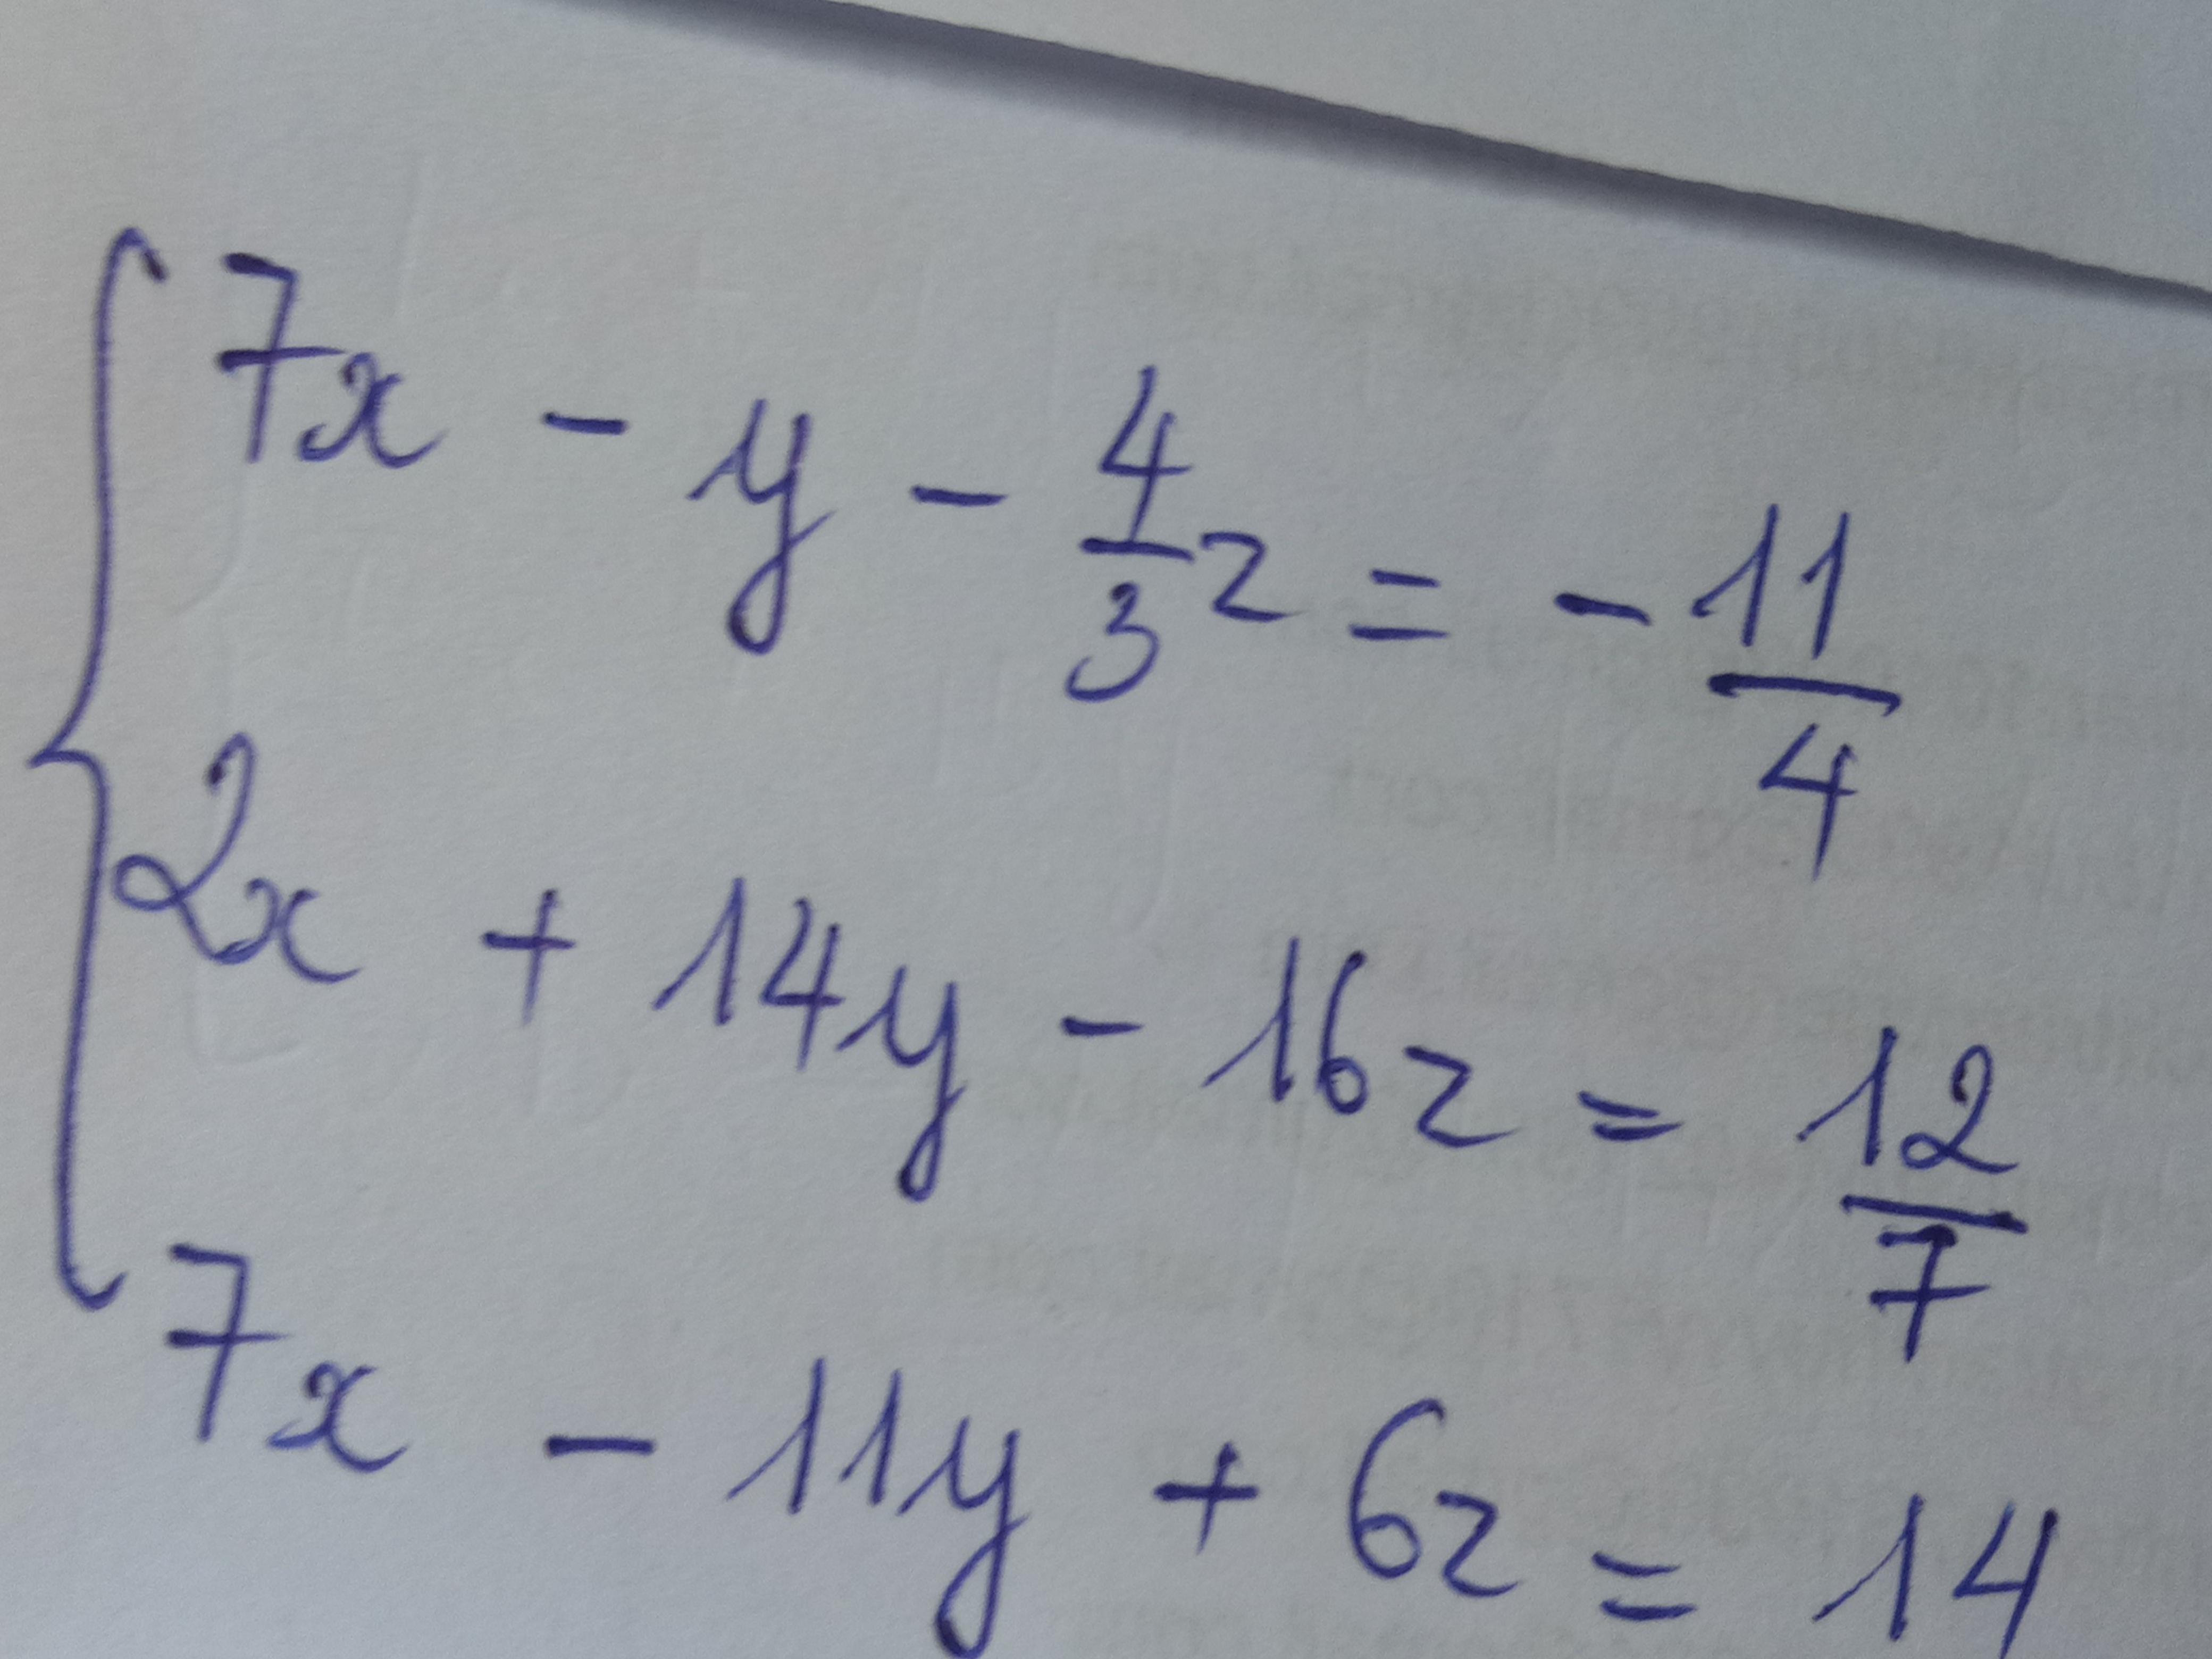 7x - y - 4/3 z = - 11/4
2x + 14y - 16z = 12/7
7x - 11y + 6z = 14